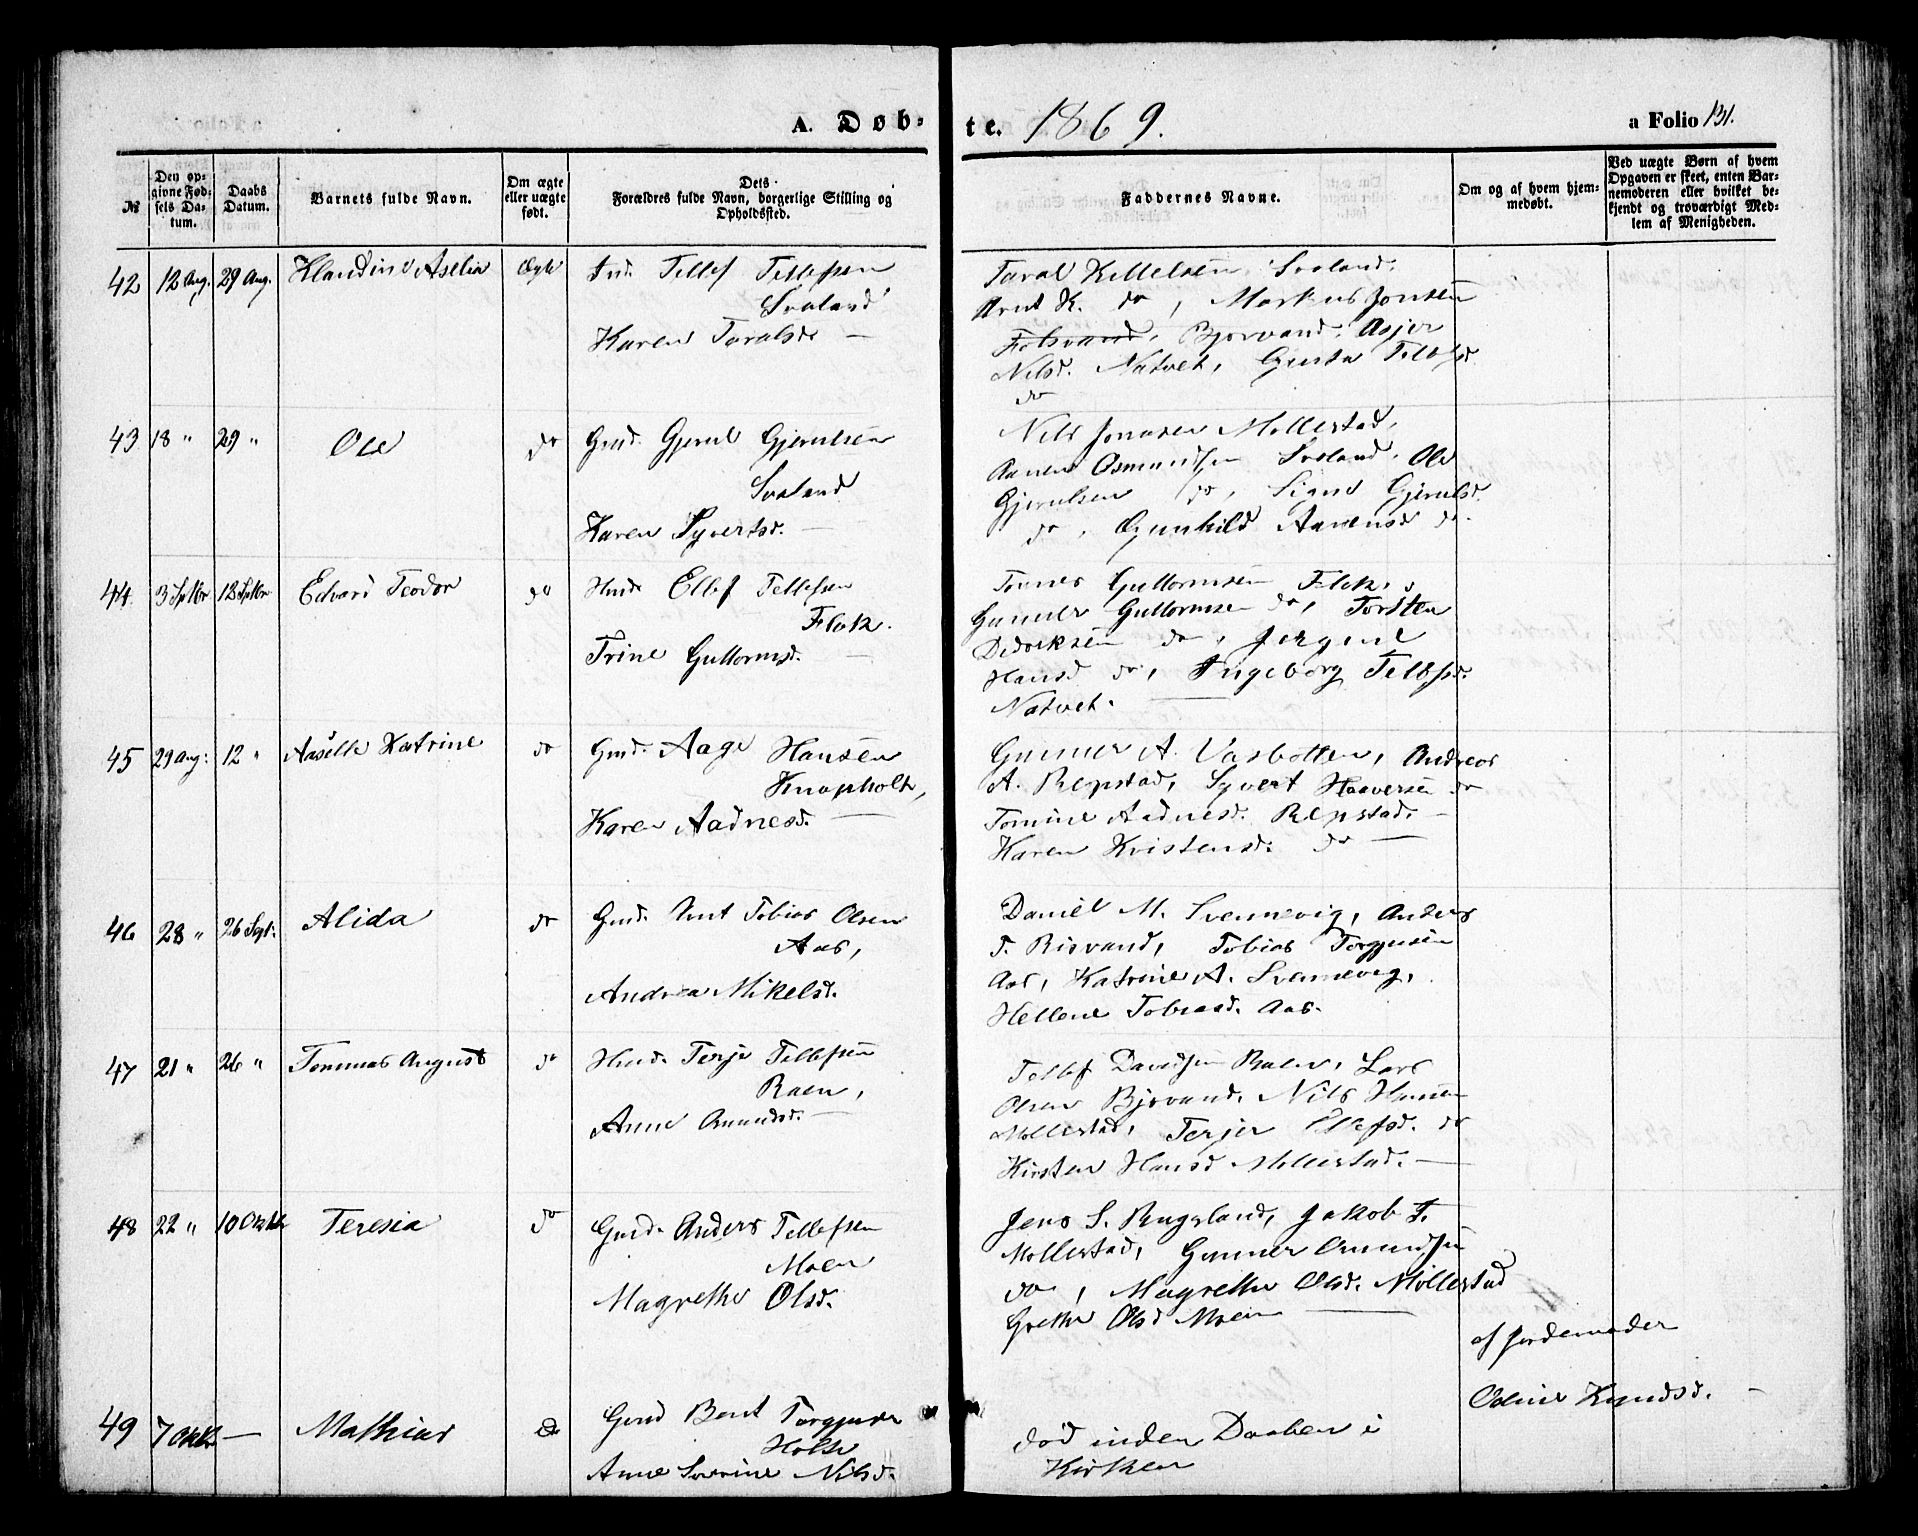 A. Døb-
te. 1869.
a Folio 131.
№
Den op-
givne Fød-
sels Da-
tum.
Daabs
Datum.
Barnets fulde Navn.
Om ægte
eller uægte
født.
Dets
Forældres fulde Navn, borgerlige Stilling og
Opholdssted.
Faddernes Navne.
Om og af hvem hjem-
medøbt.
Ved uægte Børn af hvem
Opgaven er skeet, enten Bar-
nemoderen eller hvilket be-
kjendt og troværdigt Med-
lem af Menigheden.
42 12 Aug. 29 Aug. Klaudine Aselia Ægte Ind. Tellef Tellefsen
Svaland
Karen Taralsd. —
Taral Kittelsen Svaland.
Arnt K. do, Markus Jonsen
Bjorvand. Asjer
Nilsd. Natvet, Gusta Tellefsd
do
43 18 " 29 " Ole do Gmd. Gjerul Gjerulsen
Svaland
Karen Syvertsd. —
Nils Jonasen Mollestad,
Aanen Osmundsen Svaland. Ole
Gjerulsen do, Signe Gjerulsd.
do, Gunhild Aanensd do.
44. 3 Sptbr 12 Sptbr Edvard Teodor do Hmd. Ellef Tellefsen
Flak.
Trine Guttormsd. —
Tønnes Guttormsen Flak,
Gunner Guttormsen do, Torsten
Didriksen do, Jørgine
Hansd do, Ingeborg Tellefsd.
Natvet. —
45 29 Aug: 12 " Aaselle Katrine do Gmd. Aage Hansen
Knapholt,
Karen Aadnesd. —
Gunner A. Vasbotten, Andreas
A. Repstad, Syvert Haaversen do
Tomine Aadnesd. Repstad. —
Karen Kristensd. do —
46 28 " 26 Sept: Alida do Gmd. Arnt Tobias Olsen
Aas,
Andrea Mikelsd.
Daniel M. Svennevig, Anders
T. Risvand, Tobias Torgjusen
Aas, Katrine A. Svennevig,
Hellene Tobiasd. Aas.
47 21 " 26 " Tommas August do Hmd. Terje Tellefsen
Raen,
Anne Amundsd. —
Tellef Davidsen Raen, Lars
Olsen Bjorvand. Nils Hansen
Mollestad, Terjer Ellefsd. do
Kirsten Hansd Mollestad. —
48 22 " 10 Oktbr Teresia do Gmd. Anders Tellefsen
Moen
Magrethe Olsd.
Jens S. Rugsland, Jakob T.
Mollestad, Gunner Amundsen
do, Magrethe Olsd. Mollestad
Grethe Olsd Moen —
49 7 Oktb — Mathias do Gmd Bent Torgjusen
Holte
Anne Severine Nilsd.
død inden Daaben i
Kirken
af Jordemoder
Odine Knudsd. —